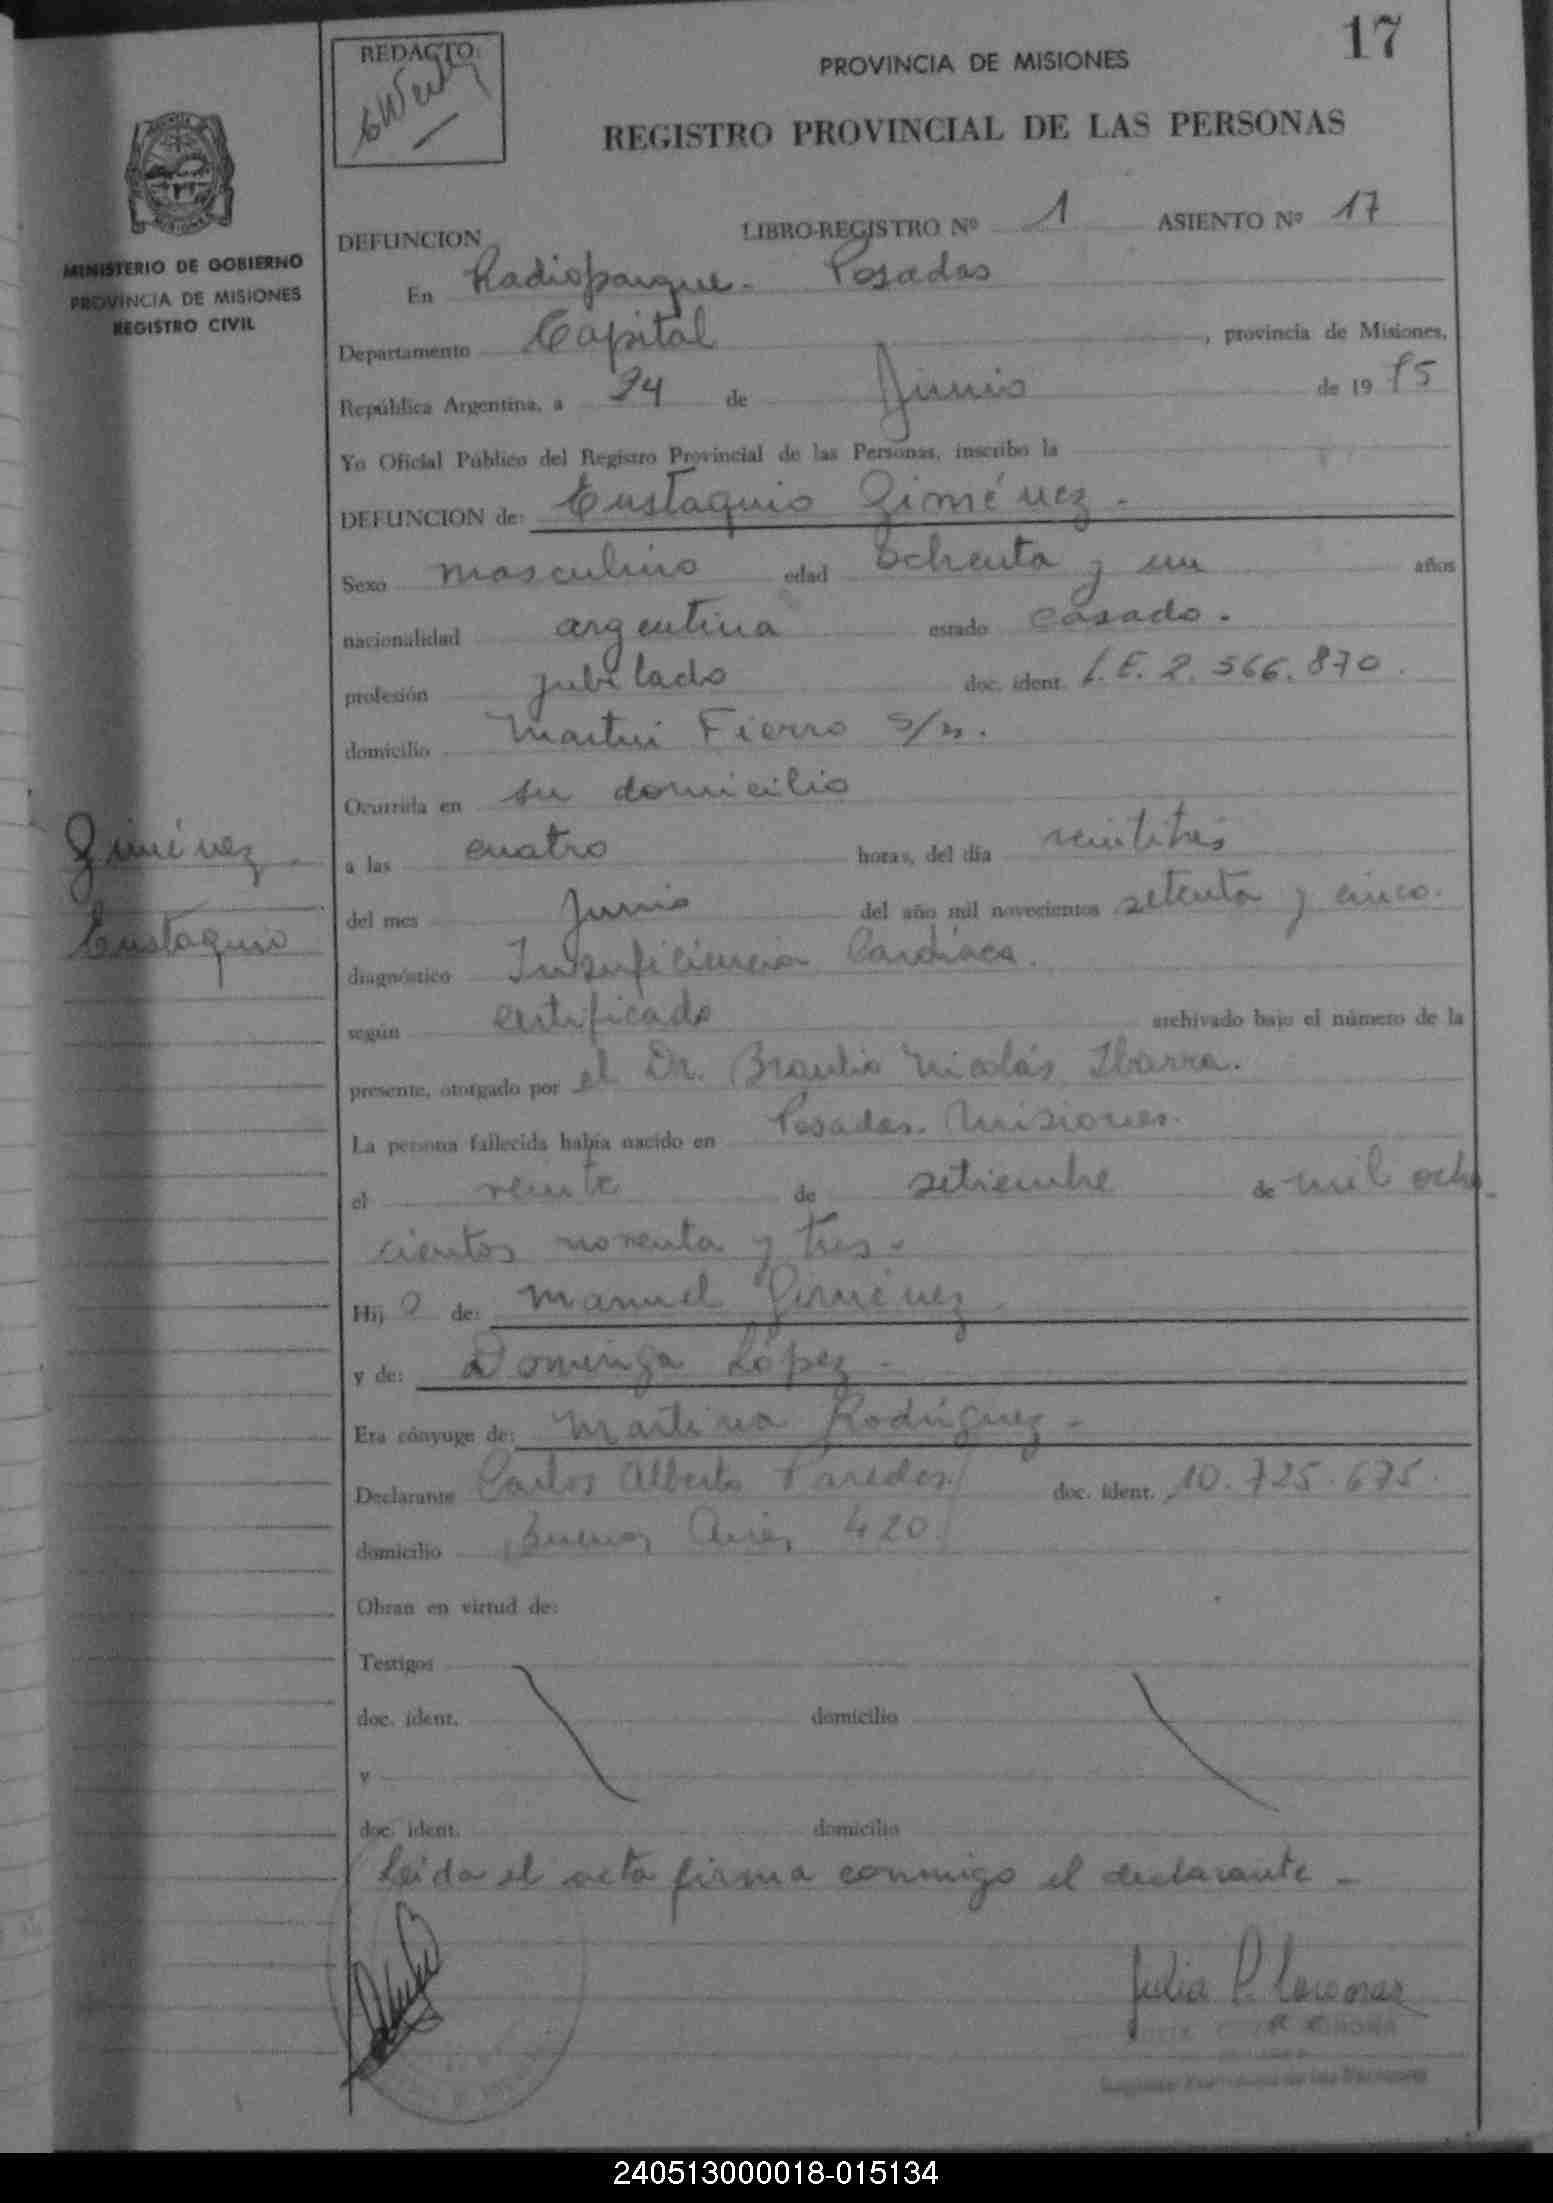 17
REDACTO:
PROVINCIA DE MISIONES
REGISTRO PROVINCIAL DE LAS PERSONAS
MINISTERIO DE GOBIERNO
PROVINCIA DE MISIONES
REGISTRO CIVIL
DEFUNCION LIBRO-REGISTRO Nº 1 ASIENTO Nº 17
En Radioparque - Posadas
Departamento Capital, provincia de Misiones,
República Argentina, a 24 de Junio de 1975
Yo Oficial Público del Registro Provincial de las Personas, inscribo la
DEFUNCION de: Eustaquio Giménez -
Sexo masculino edad ochenta y un años
nacionalidad argentina estado casado.
profesión jubilado doc. ident. L.E. 2.566.870.
domicilio Martin Fierro s/n.
Ocurrida en su domicilio
a las cuatro horas, del día veintitrés
del mes junio del año mil novecientos setenta y cinco.
diagnóstico Insuficiencia Cardíaca.
según certificado archivado bajo el número de la
presente, otorgado por el Dr. Braulio Nicolás Ibarra.
La persona fallecida había nacido en Posadas. Misiones.
el veinte de setiembre de mil ocho
cientos noventa y tres -
Hijo de: Manuel Giménez
y de: Dominga López -
Era cónyuge de: Martina Rodríguez -
Declarante Carlos Alberto Paredes doc. ident. 10.725.675.
domicilio Buenos Aires 420
Obran en virtud de:
Testigos
doc. ident. domicilio
y
doc. ident. domicilio
Leída el acta firma conmigo el declarante -
Giménez
Eustaquio
Julia P.
240513000018-015134